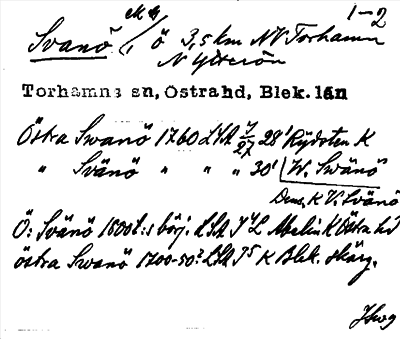 1-2
Svanö, ö 3,5 km NV Torhamn
N Ytterön
Torhamns sn, Östrahd, Blek. län
Östra Swanö 1760 LSA 28' Rydsten K
" Svänö " " " 30' W. Swänö
Dens. K V. Svänö
Ö: Svänö 1800t:s börj. LSA Abelin K Östra hd
östra Swanö 1700-50? LSA K Blek. skärg.